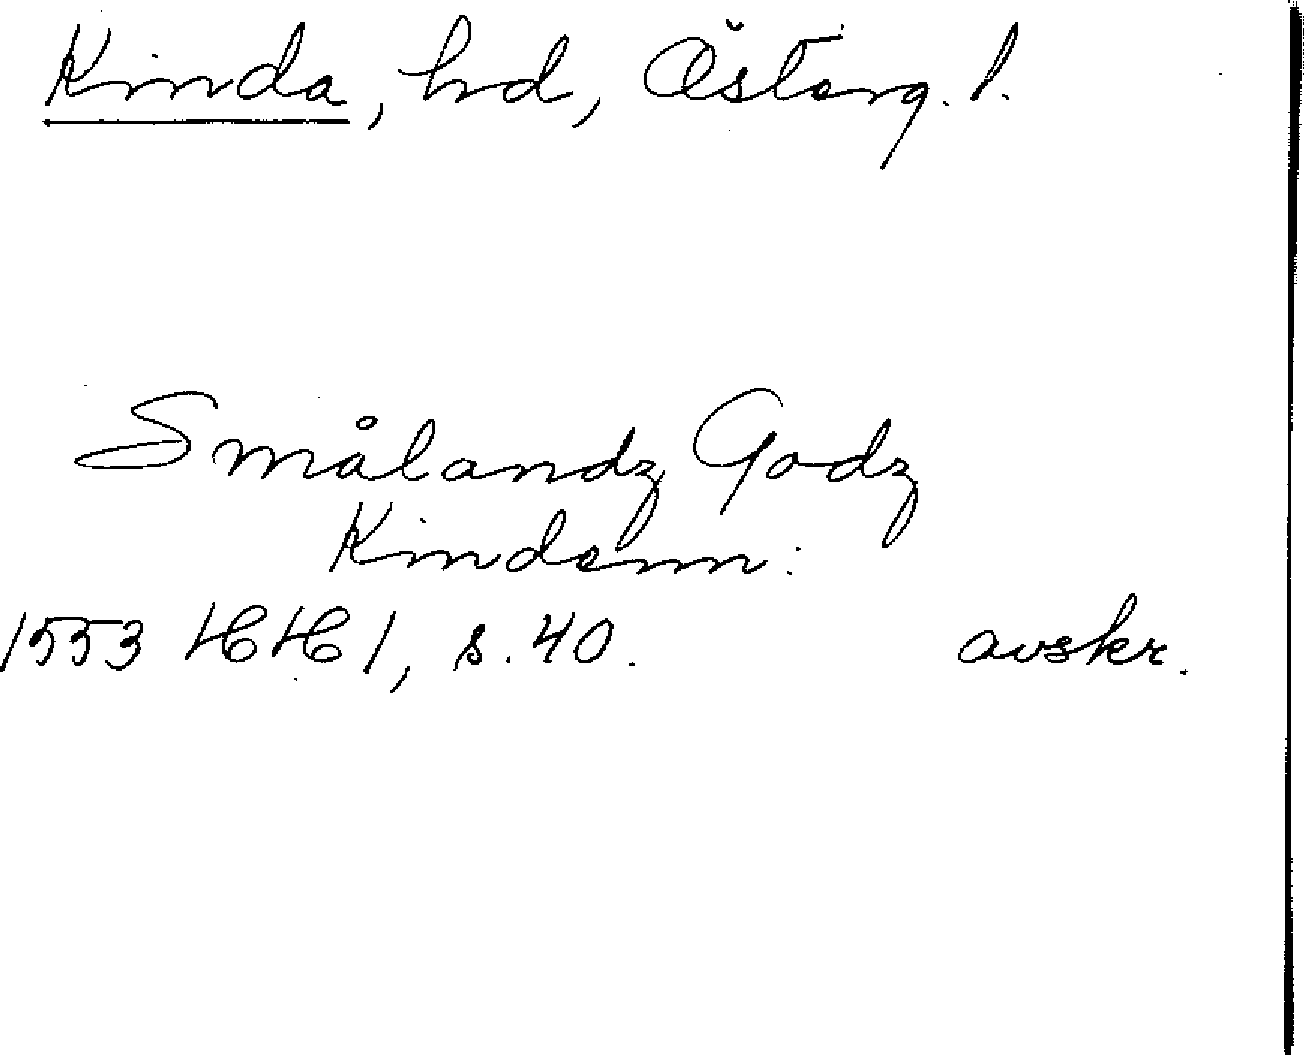 Kinda, hd, Österg. l.
Smålandz Godz
Kindenn:
1553 HH 1, s. 40. avskr.